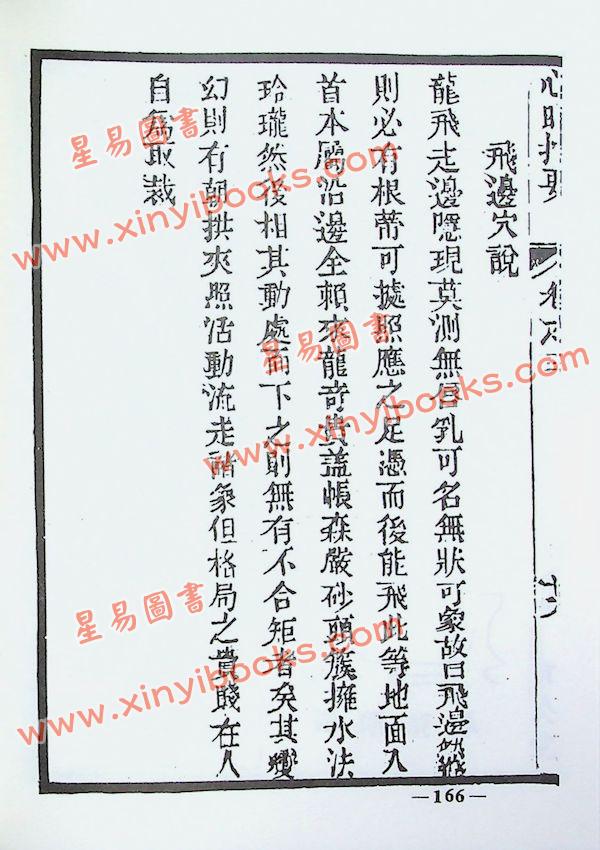 心眼指要
飛邊穴說
龍飛走邊隱現莫測無唇乳可名無狀可象故曰飛邊然飛
則必有根蒂可據照應之足憑而後能飛此等地面入
首本屬沿邊全賴來龍奇貴蓋帳森嚴砂頭簇擁水法
玲瓏然後相其動處而下之則無有不合矩者矣其變
幻則有朝拱夾照活動流走諸象但格局之貴賤在人
自為取裁
—166—
星易圖書
www.xinyibooks.com
星易圖書
www.xinyibooks.com
星易圖書
www.xinyibooks.com